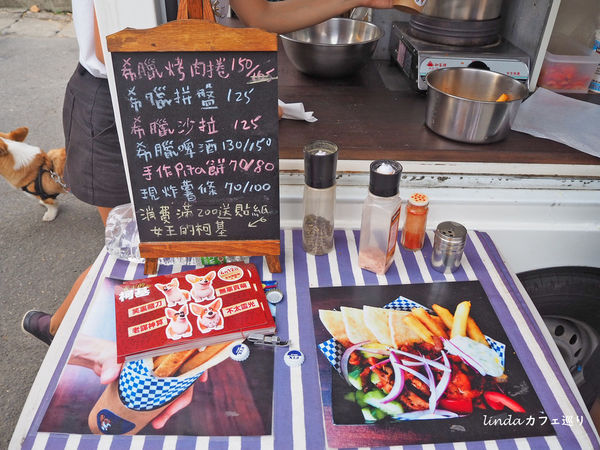 希臘烤肉捲 150/165
希臘拼盤 125
希臘沙拉 125
希臘啤酒 130/150
手作Pita餅 70/80
現炸薯條 70/100
消費滿200送貼紙
女王的柯基
柯基
lindaカフェ巡り